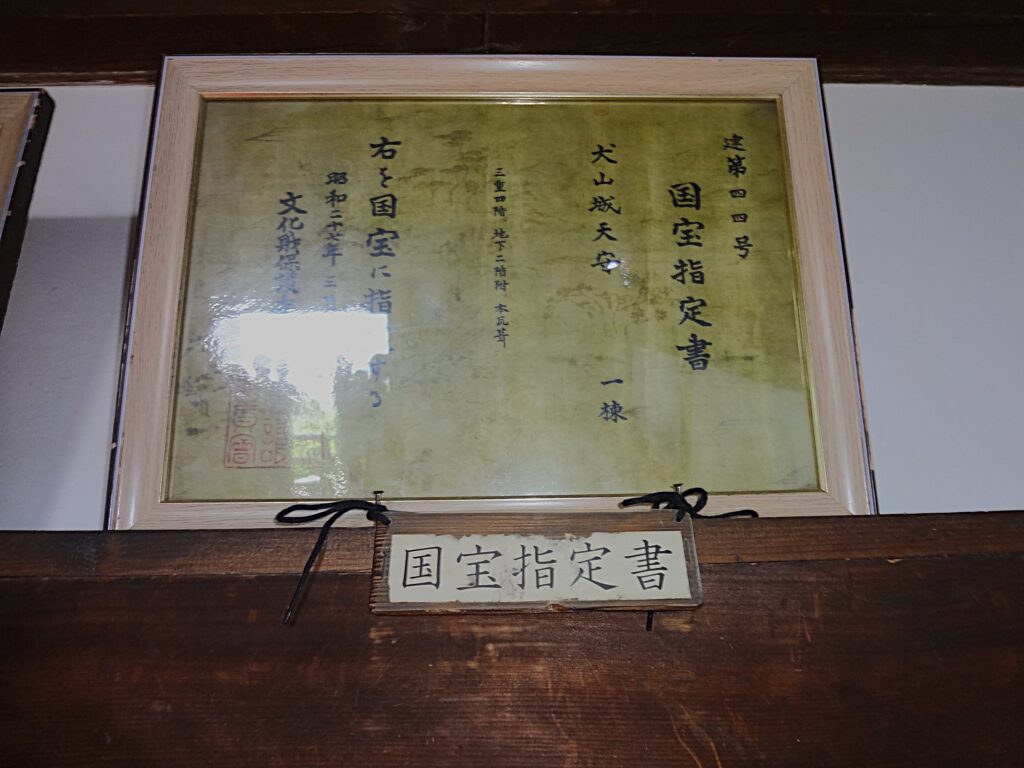 建第四四号
国宝指定書
犬山城天守 一棟
三重四階、地下二階附、本瓦葺
右を国宝に指定する
昭和二十七年 三月
文化財保護
国宝指定書